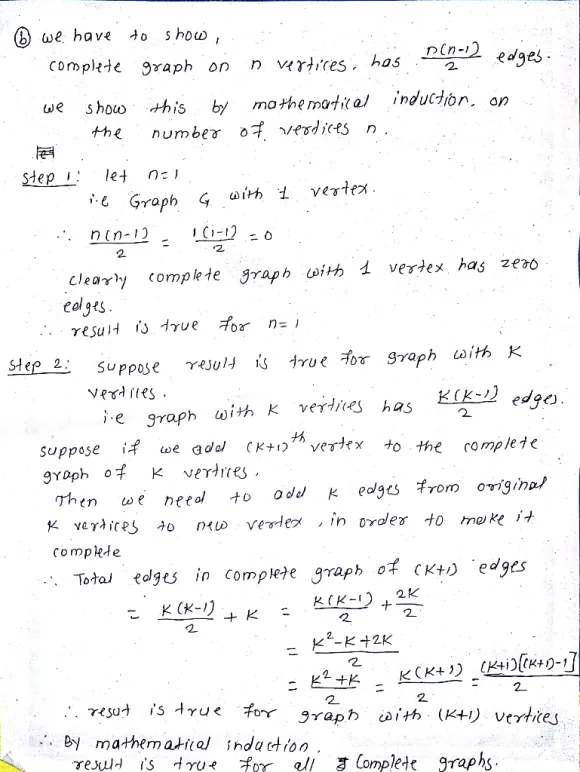 ⓑ we have to show,
complete graph on n vertices, has n(n-1)/2 edges.
we show this by mathematical induction, on
the number of vertices n.
step 1: let n=1
i.e Graph G with 1 vertex.
∴ n(n-1)/2 = 1(1-1)/2 = 0
clearly complete graph with 1 vertex has zero
edges.
∴ result is true for n=1
step 2: suppose result is true for graph with K
vertices.
i.e graph with K vertices has K(K-1)/2 edges.
suppose if we add (K+1)th vertex to the complete
graph of K vertices.
Then we need to add K edges from original
K vertices to new vertex, in order to make it
complete
∴ Total edges in complete graph of (K+1) edges
= K(K-1)/2 + K = K(K-1)/2 + 2K/2
= K²-K+2K/2
= K²+K/2 = K(K+1)/2 = (K+1)[(K+1)-1]/2
∴ resut is true for graph with (K+1) vertices
∴ By mathematical induction,
result is true for all complete graphs.